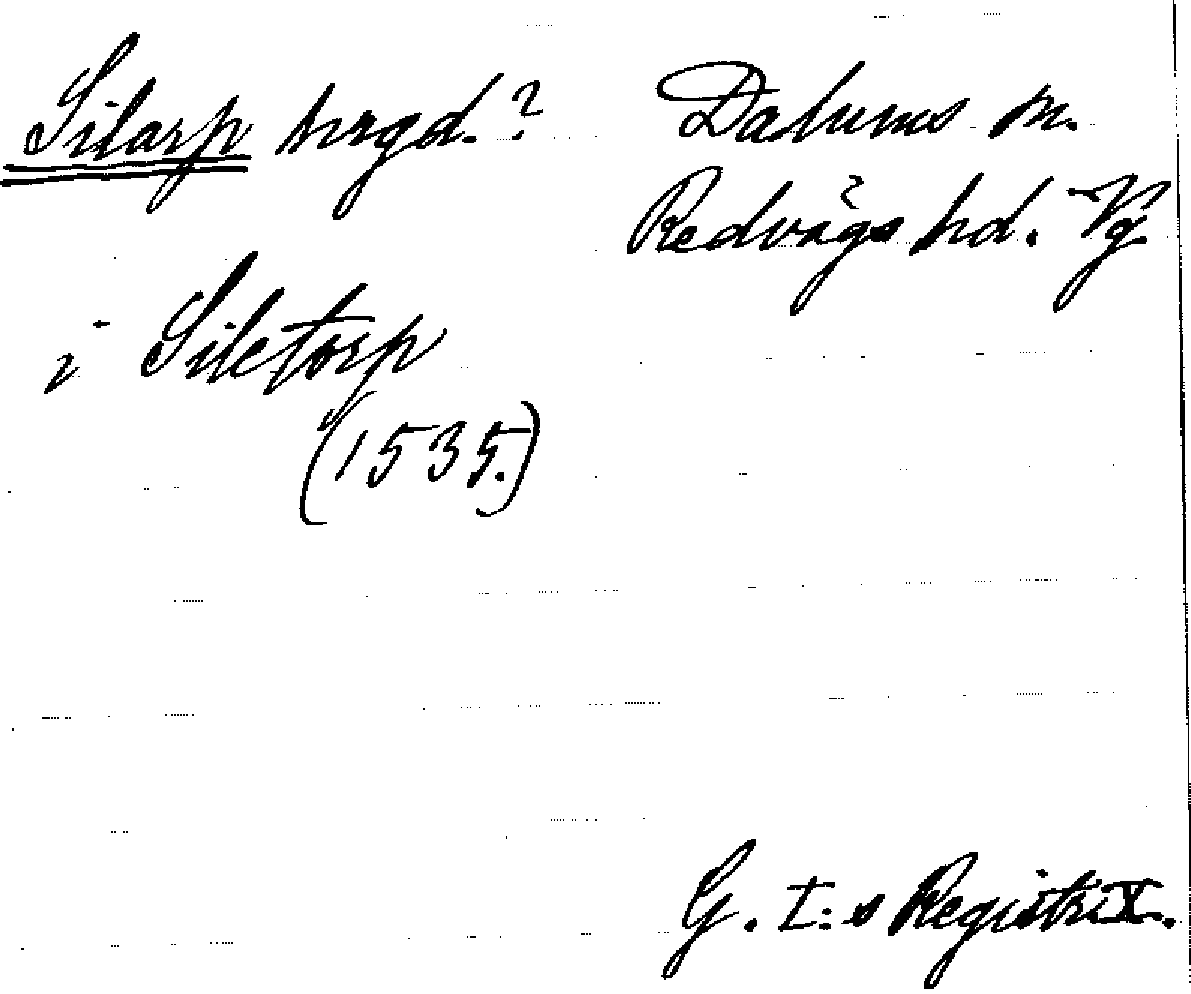 Silarp hrgd.? Dalums sn.
Redvägs hd. Vg
i Siletorp
(1535.)
G. I:s Registr. X.